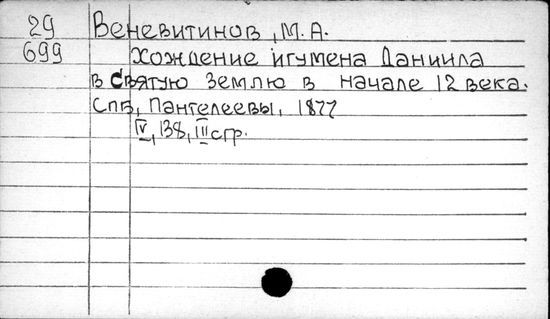 29 Веневитинов, М.А.
699 Хождение игумена Даниила
в святую землю в начале 12 века.
Спб, Пантелеевы, 1877
IV, 138, III стр.